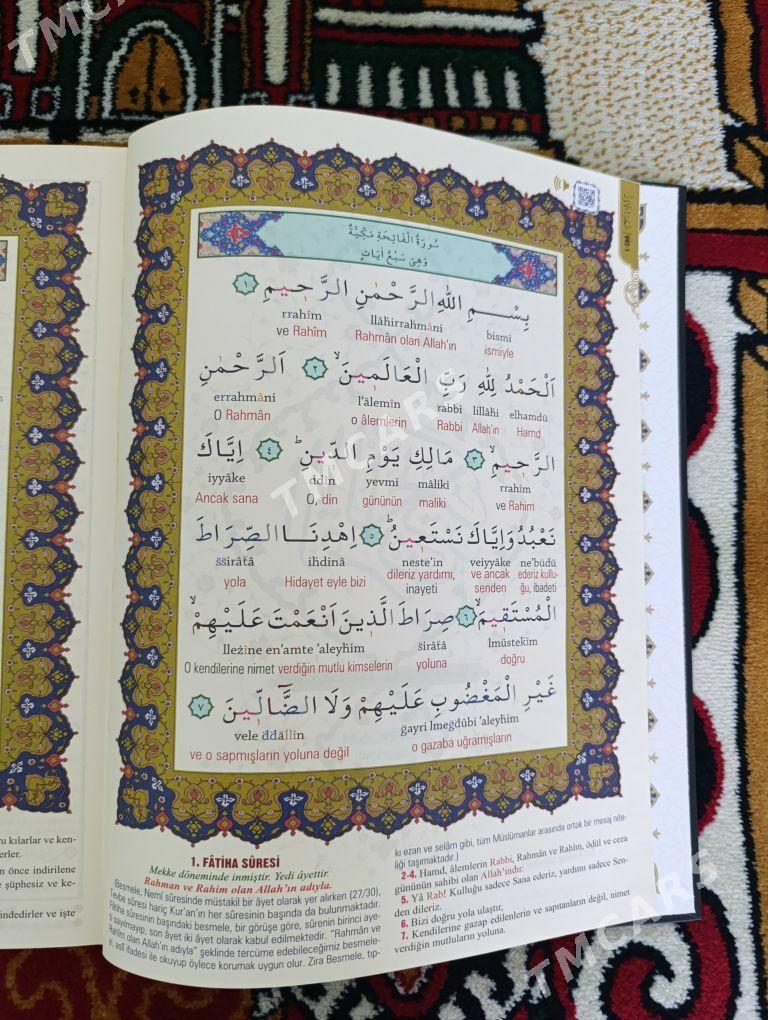 TMCARS
سُورَةُ الْفَاتِحَةِ مَكِّيَّةٌ
وَهِيَ سَبْعُ اٰيَاتٍ
بِسْمِ اللّٰهِ الرَّحْمٰنِ الرَّحٖيمِ ١
rrahîm llâhirrahmâni bismi
ve Rahîm Rahmân olan Allah'ın ismiyle
اَلْحَمْدُ لِلّٰهِ رَبِّ الْعَالَمٖينَۙ ٢ اَلرَّحْمٰنِ
errahmâni l'âlemîn rabbi lillâhi elhamdü
O Rahmân o âlemlerin Rabbi Allah'ın Hamd
الرَّحٖيمِۙ ٣ مَالِكِ يَوْمِ الدّٖينِؕ ٤ اِيَّاكَ
iyyâke ddîn yevmi mâliki rrahîm
Ancak sana O, din gününün maliki ve Rahim
TMCARS
نَعْبُدُ وَاِيَّاكَ نَسْتَعٖينُؕ ٥ اِهْدِنَا الصِّرَاطَ
ṡṡirâťâ ihdinâ neste'în veiyyâke ne'büdü
yola Hidayet eyle bizi dileriz yardımı, ve ancak ederiz kullu-
inayeti senden ğu, ibadeti
الْمُسْتَقٖيمَۙ ٦ صِرَاطَ الَّذٖينَ اَنْعَمْتَ عَلَيْهِمْۙ
lleżîne en'amte 'aleyhim ṡirâťâ lmüstekîm
O kendilerine nimet verdiğin mutlu kimselerin yoluna doğru
غَيْرِ الْمَغْضُوبِ عَلَيْهِمْ وَلَا الضَّٓالّٖينَ ٧
vele ḋḋâllîn ġayri lmeġdûbi 'aleyhim
ve o sapmışların yoluna değil o gazaba uğramışların
ru kılarlar ve ken-
erler.
n önce indirilene
e şüphesiz ve ke-
indedirler ve işte
1. FÂTİHA SÛRESİ
Mekke döneminde inmiştir. Yedi âyettir.
Rahman ve Rahim olan Allah'ın adıyla.
(Besmele, Neml sûresinde müstakil bir âyet olarak yer alırken (27/30),
Tevbe sûresi hariç Kur'an'ın her sûresinin başında da bulunmaktadır.
Fâtiha sûresinin başındaki besmele, bir görüşe göre, sûrenin birinci aye-
ti sayılmayıp, son âyet iki âyet olarak kabul edilmektedir. "Rahmân ve
Rahîm olan Allah'ın adıyla" şeklinde tercüme edebileceğimiz besmele-
yi, aslî ifadesi ile okuyup öylece korumak uygun olur. Zira Besmele, tıp-
kı ezan ve selâm gibi, tüm Müslümanlar arasında ortak bir mesaj nite-
liği taşımaktadır.)
2-4. Hamd, âlemlerin Rabbi, Rahmân ve Rahîm, ödül ve ceza
gününün sahibi olan Allah'ındır.
5. Yâ Rab! Kulluğu sadece Sana ederiz, yardımı sadece Sen-
den dileriz.
6. Bizi doğru yola ulaştır,
7. Kendilerine gazap edilenlerin ve sapıtanların değil, nimet
verdiğin mutluların yoluna.
TMCARS